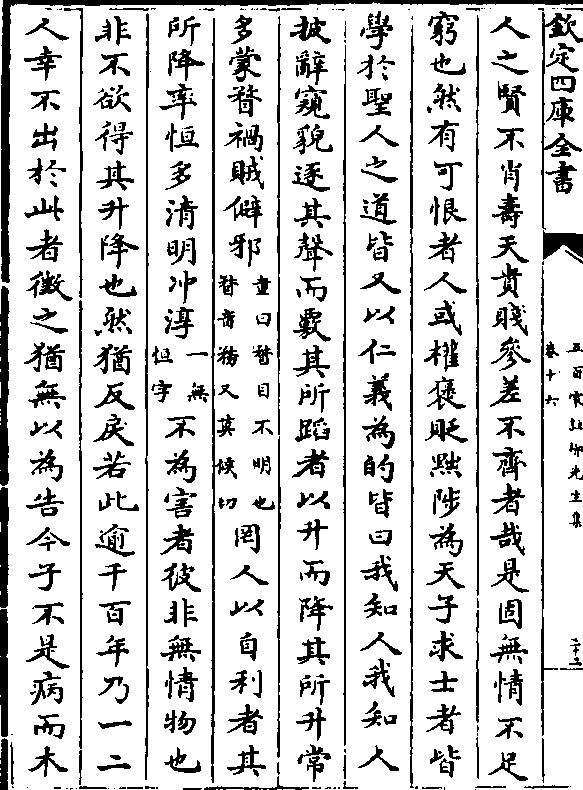 欽定四庫全書
五百家註柳先生集
卷十六
二十三
人之賢不肖壽夭貴賤參差不齊者哉是固無情不足
窮也然有可恨者人或權褒貶黜陟為天子求士者皆
學於聖人之道皆又以仁義為的皆曰我知人我知人
披辭窺貌逐其聲而覈其所蹈者以升而降其所升常
多蒙瞀禍賊僻邪童曰瞀目不明也瞀音務又莫候切罔人以自利者其
所降率恒多清明冲淳一無恒字不為害者彼非無情物也
非不欲得其升降也然猶反戾若此逾千百年乃一二
人幸不出於此者徵之猶無以為告今子不是病而木